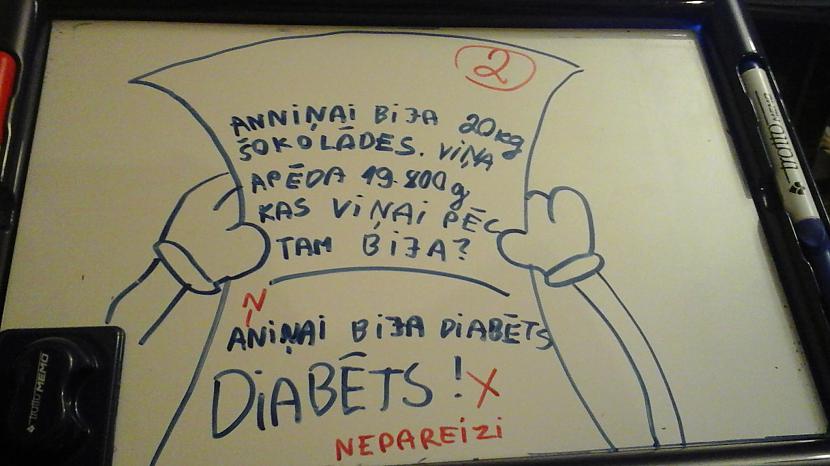 2
ANNIŅAI BIJA 20kg
ŠOKOLĀDES. VIŅA
APĒDA 19.800g
KAS VIŅAI PĒC
TAM BIJA?
N
ANIŅAI BIJA DIABĒTS
DIABĒTS! X
NEPAREIZI
tratto MEMO
tratto